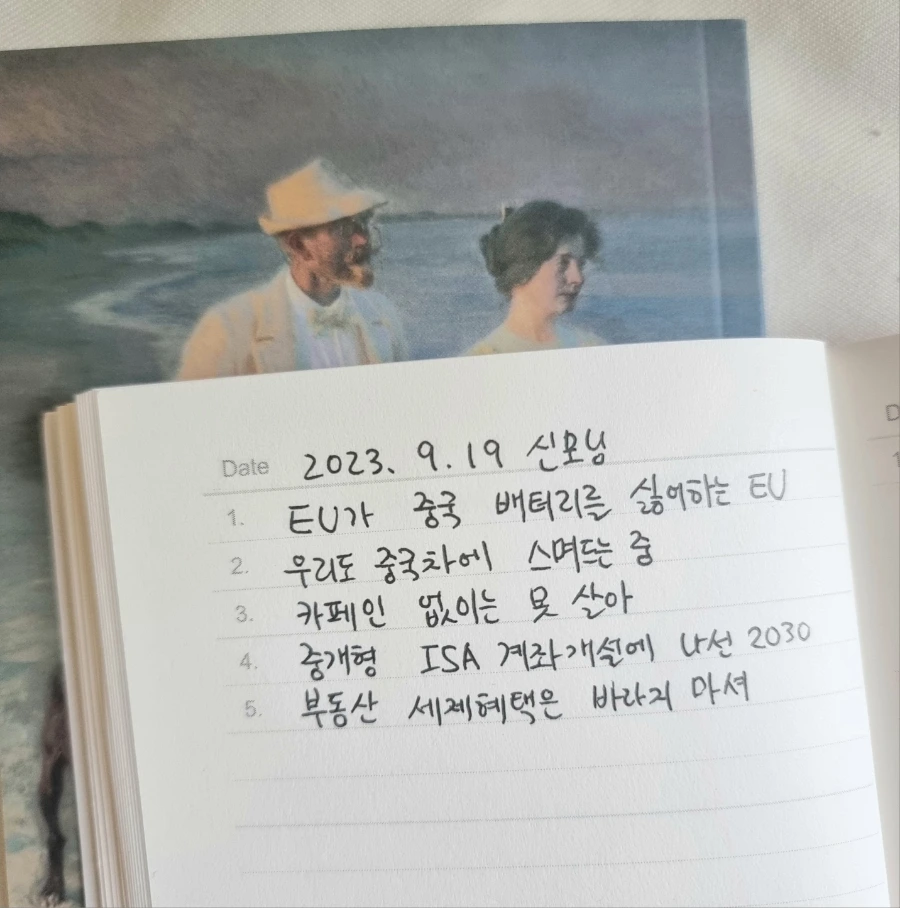 Date 2023. 9. 19 신모닝
1. EU가 중국 배터리를 싫어하는 EU
2. 우리도 중국차에 스며드는 중
3. 카페인 없이는 못 살아
4. 중개형 ISA 계좌개설에 나선 2030
5. 부동산 세제혜택은 바라지 마셔
D
1